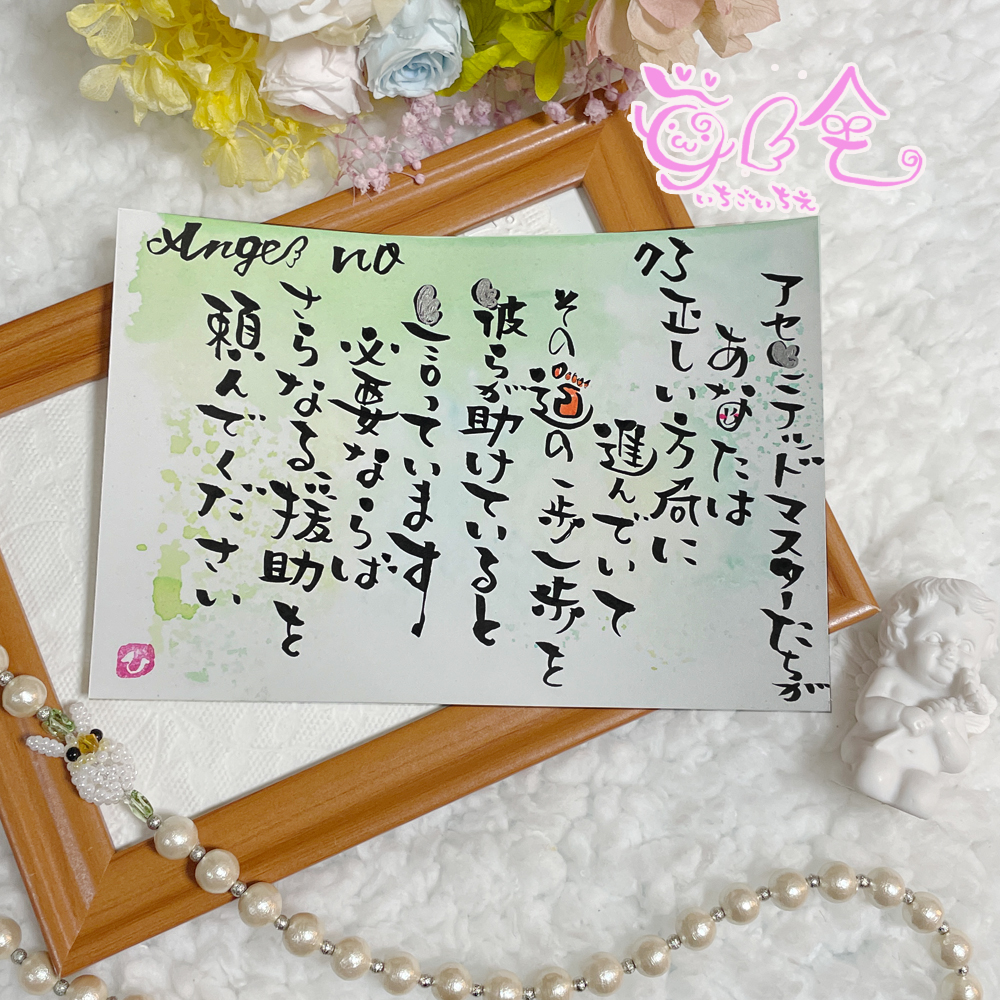 Angel no 73
アセンデッドマスターたちが
あなたは
正しい方向に
進んでいて
その道の一歩一歩を
彼らが助けていると
言っています
必要ならば
さらなる援助を
頼んでください
いちごいちえ